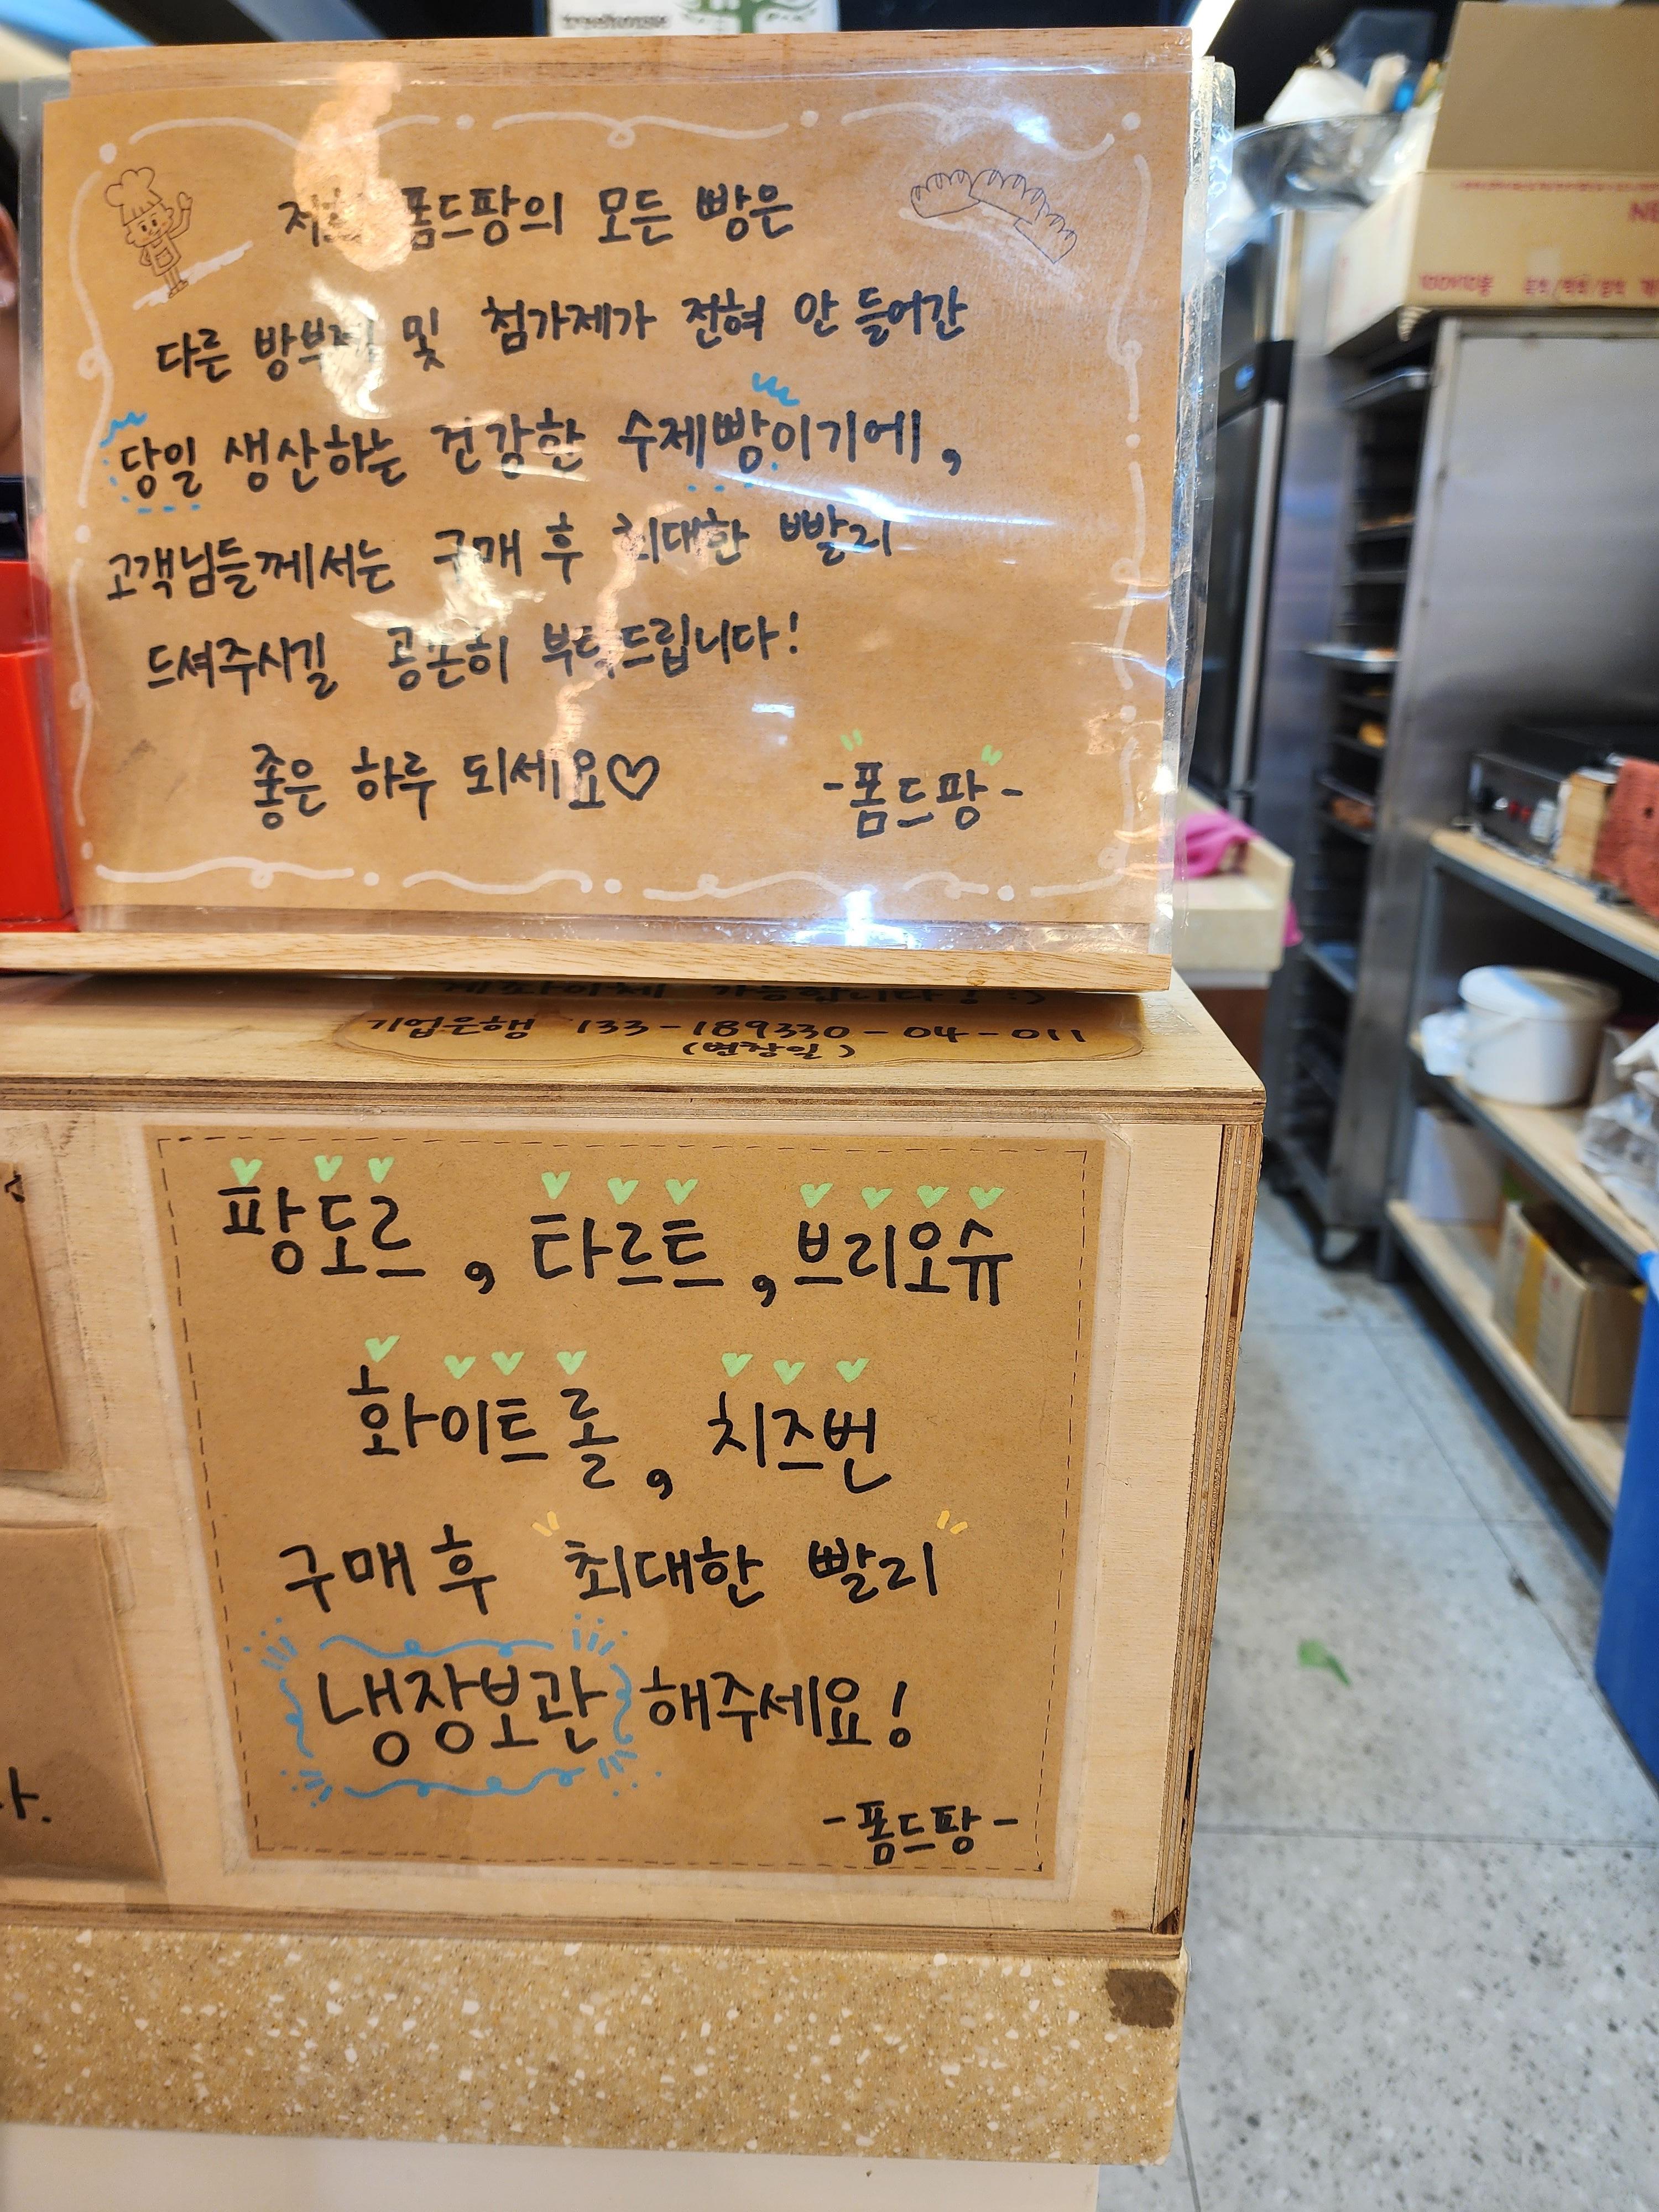 treehouse
저희 폼드팡의 모든 빵은
다른 방부제 및 첨가제가 전혀 안 들어간
당일 생산하는 건강한 수제빵이기에,
고객님들께서는 구매 후 최대한 빨리
드셔주시길 공손히 부탁드립니다!
좋은 하루 되세요♡
-폼드팡-
계좌이체 가능합니다! :)
기업은행 133-189330-04-011
(변창일)
팡도르, 타르트, 브리오슈
화이트롤, 치즈번
구매 후 "최대한 빨리"
냉장보관 해주세요!
-폼드팡-